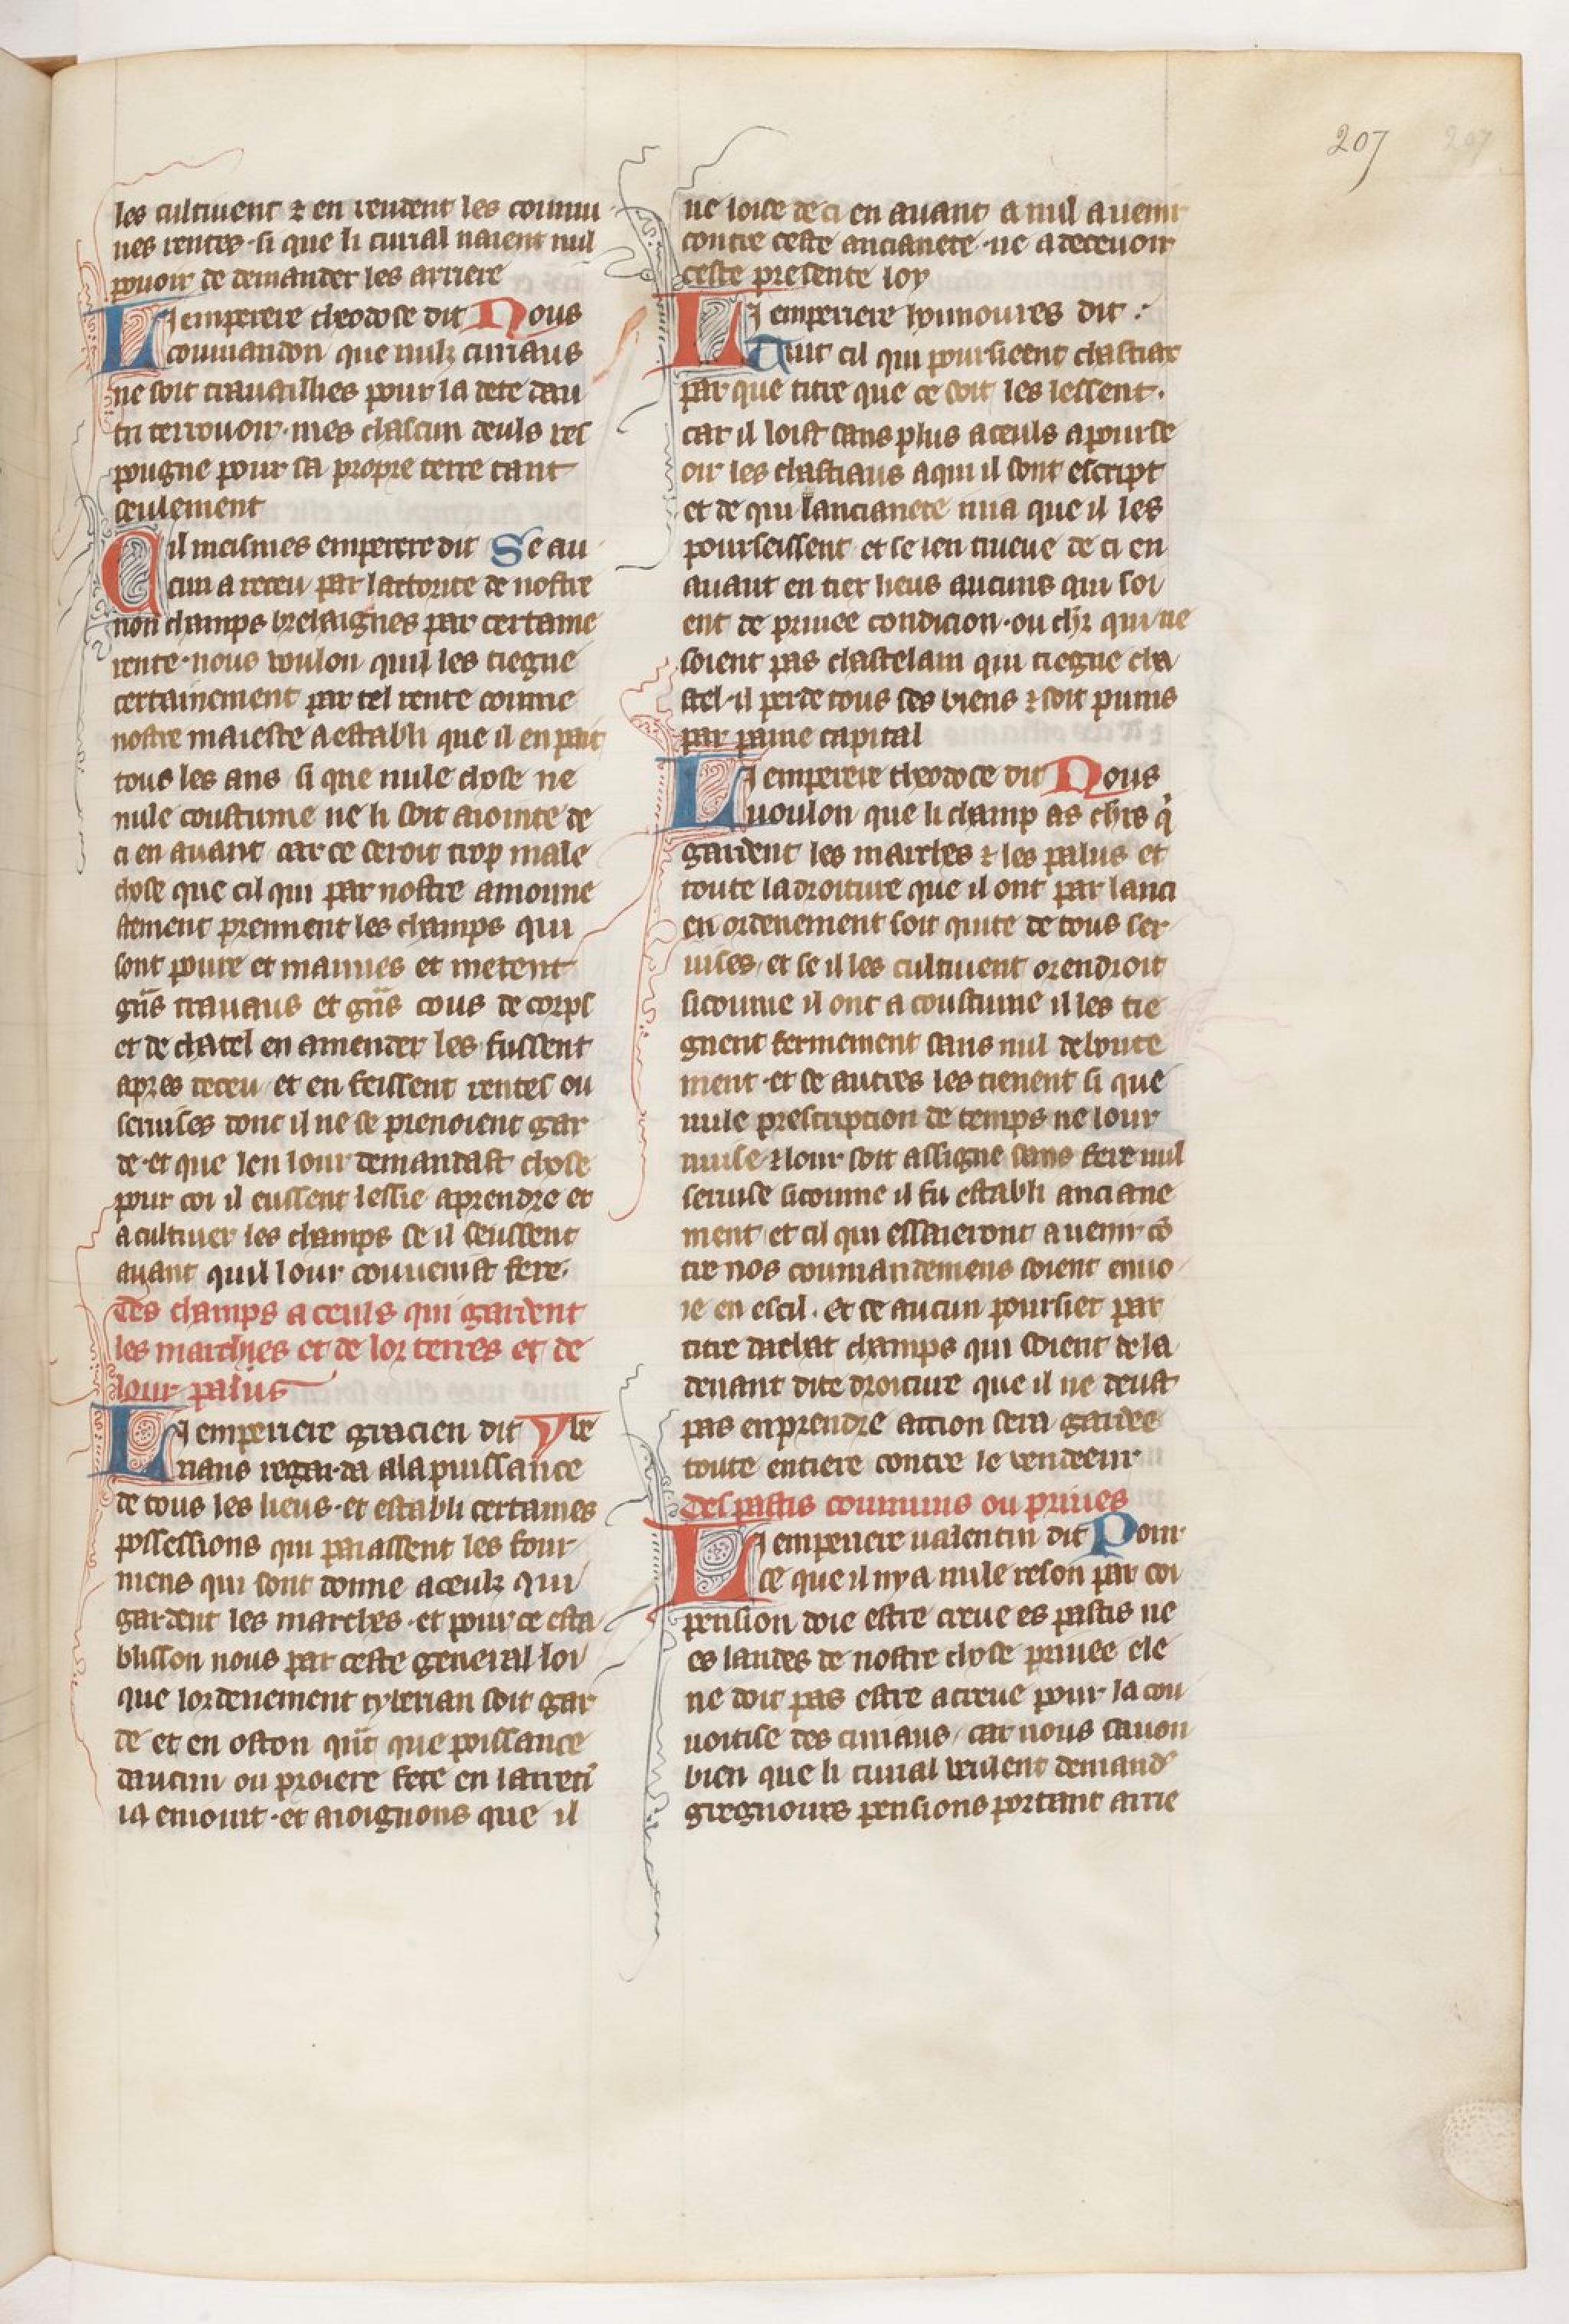 207
les cultiuent ⁊ en rendent les commu
nes rentes · si que li curial naient nul
pouoir de demander les arriere
Li emperere theodose dit Nous
commandon que nulz curiaus
ne soit trauailhes pour la dete dau
tri terrouoir · mes chascun deuls res
pougne pour sa propre terre tant
seulement
Cil meismes emperere dit Se au
cun a receu par lactorite de nostre
non champs brehaignes par certaine
rente · nous voulon quil les tiegne
certainement par tel rente comme
nostre maieste a establi que il en pait
tous les ans si que nule chose ne
nule coustume ne li soit aiointe de
ci en auant car ce seroit trop male
chose que cil qui par nostre amonne
stement prennent les champs qui
sont poure et maunes et metent
gñs trauaus et gñs cous de corps
et de chatel en amender les fussent
apres deceu et en feissent rentes ou
seruises dont il ne se prenoient gar
de · et que len lour demandast chose
pour coi il eussent lessie aprendre et
a cultiuer les champs se il seussent
auant quil lour conuenist fere ·
Des champs a ceuls qui gardent
les marches et de lor terres et de
lour palus
Li emperiere gracien dit Tybe
rians regarda a la puissance
de tous les lieus · et establi certaines
possessions qui paiassent les four
mens qui sont donne a ceulz qui
gardent les marches · et pour ce esta
blisson nous par ceste general loi
que lordenement tyberian soit gar
de et en oston qñt que poissance
daucun ou proiere fete en larreti
ia emouit · et aioignons que il
ne loise de ci en auant a nul a uenir
contre ceste ancianete · ne a deceuoir
ceste presente loy
Li emperiere honnoures dit :
Tuit cil qui poursieent chastiax
par que titre que ce soit les lessent .
car il loist sans plus a ceuls a pourse
oir les chastiaus a qui il sont escript
et de qui lancianete iuia que il les
pourseissent et se len trueue de ci en
auant en tiex lieus aucuns qui soi
ent de priuee condicion · ou chr qui ne
soient pas chastelain qui tiegne cha
stel · il perde tous ses biens ⁊ soit punis
par paine capital
Li emperere theodoce dit Nous
uoulon que li champ as chrs q̇
gardent les marches ⁊ les palus et
toute la droiture que il ont par lanci
en ordenement soit quite de tous ser
uises / et se il les cultiuent orendroit
si comme il ont a coustume il les tie
gnent fermement sans nul deboute
ment · et se autres les tienent si que
nule prescription de temps ne lour
nuise ⁊ lour soit assigne sans fere nul
seruise si comme il fu establi anciane
ment et cil qui essaieront a uenir cō
tre nos commandemens soient enuo
ie en escil . et se aucun poursiet par
titre dachat champs qui soient de la
deuant dite droiture que il ne deust
pas enprendre action sera gardee
toute entiere contre le vendeeur
Des pastis communs ou priues
Li emperiere ualentin dit Pour
ce que il ny a nule reson par coi
pension doie estre creue es pastis ne
es landes de nostre chose priuee ele
ne doit pas estre acreue pour la cou
uoitise des curiaus / car nous sauon
bien que li curial veulent demand̾
gregnours pensions portant arrie